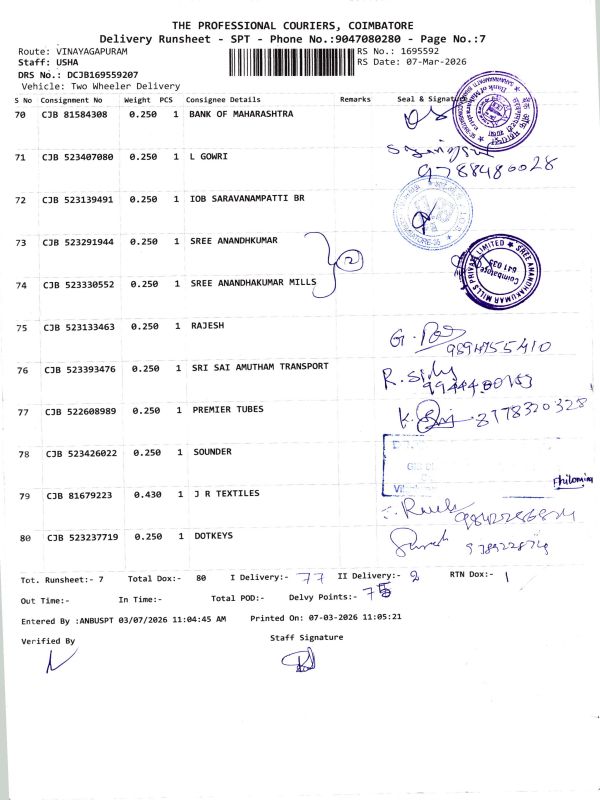 THE PROFESSIONAL COURIERS, COIMBATORE
Delivery Runsheet - SPT - Phone No.:9047080280 - Page No.:7
Route: VINAYAGAPURAM RS No.: 1695592
Staff: USHA RS Date: 07-Mar-2026
DRS No.: DCJB169559207
Vehicle: Two Wheeler Delivery
S No Consignment No Weight PCS Consignee Details Remarks Seal & Signature
70 CJB 81584308 0.250 1 BANK OF MAHARASHTRA
71 CJB 523407080 0.250 1 L GOWRI
9788480028
72 CJB 523139491 0.250 1 IOB SARAVANAMPATTI BR
73 CJB 523291944 0.250 1 SREE ANANDHKUMAR
2
SREE ANANDHAKUMAR MILLS PRIVATE LIMITED
Coimbatore
641 035
74 CJB 523330552 0.250 1 SREE ANANDHAKUMAR MILLS
75 CJB 523133463 0.250 1 RAJESH
9894755410
76 CJB 523393476 0.250 1 SRI SAI AMUTHAM TRANSPORT
77 CJB 522608989 0.250 1 PREMIER TUBES
8778320328
78 CJB 523426022 0.250 1 SOUNDER
79 CJB 81679223 0.430 1 J R TEXTILES
80 CJB 523237719 0.250 1 DOTKEYS
Tot. Runsheet:- 7 Total Dox:- 80 I Delivery:- 77 II Delivery:- 2 RTN Dox:- 1
Out Time:- In Time:- Total POD:- Delvy Points:- 75
Entered By :ANBUSPT 03/07/2026 11:04:45 AM Printed On: 07-03-2026 11:05:21
Verified By Staff Signature